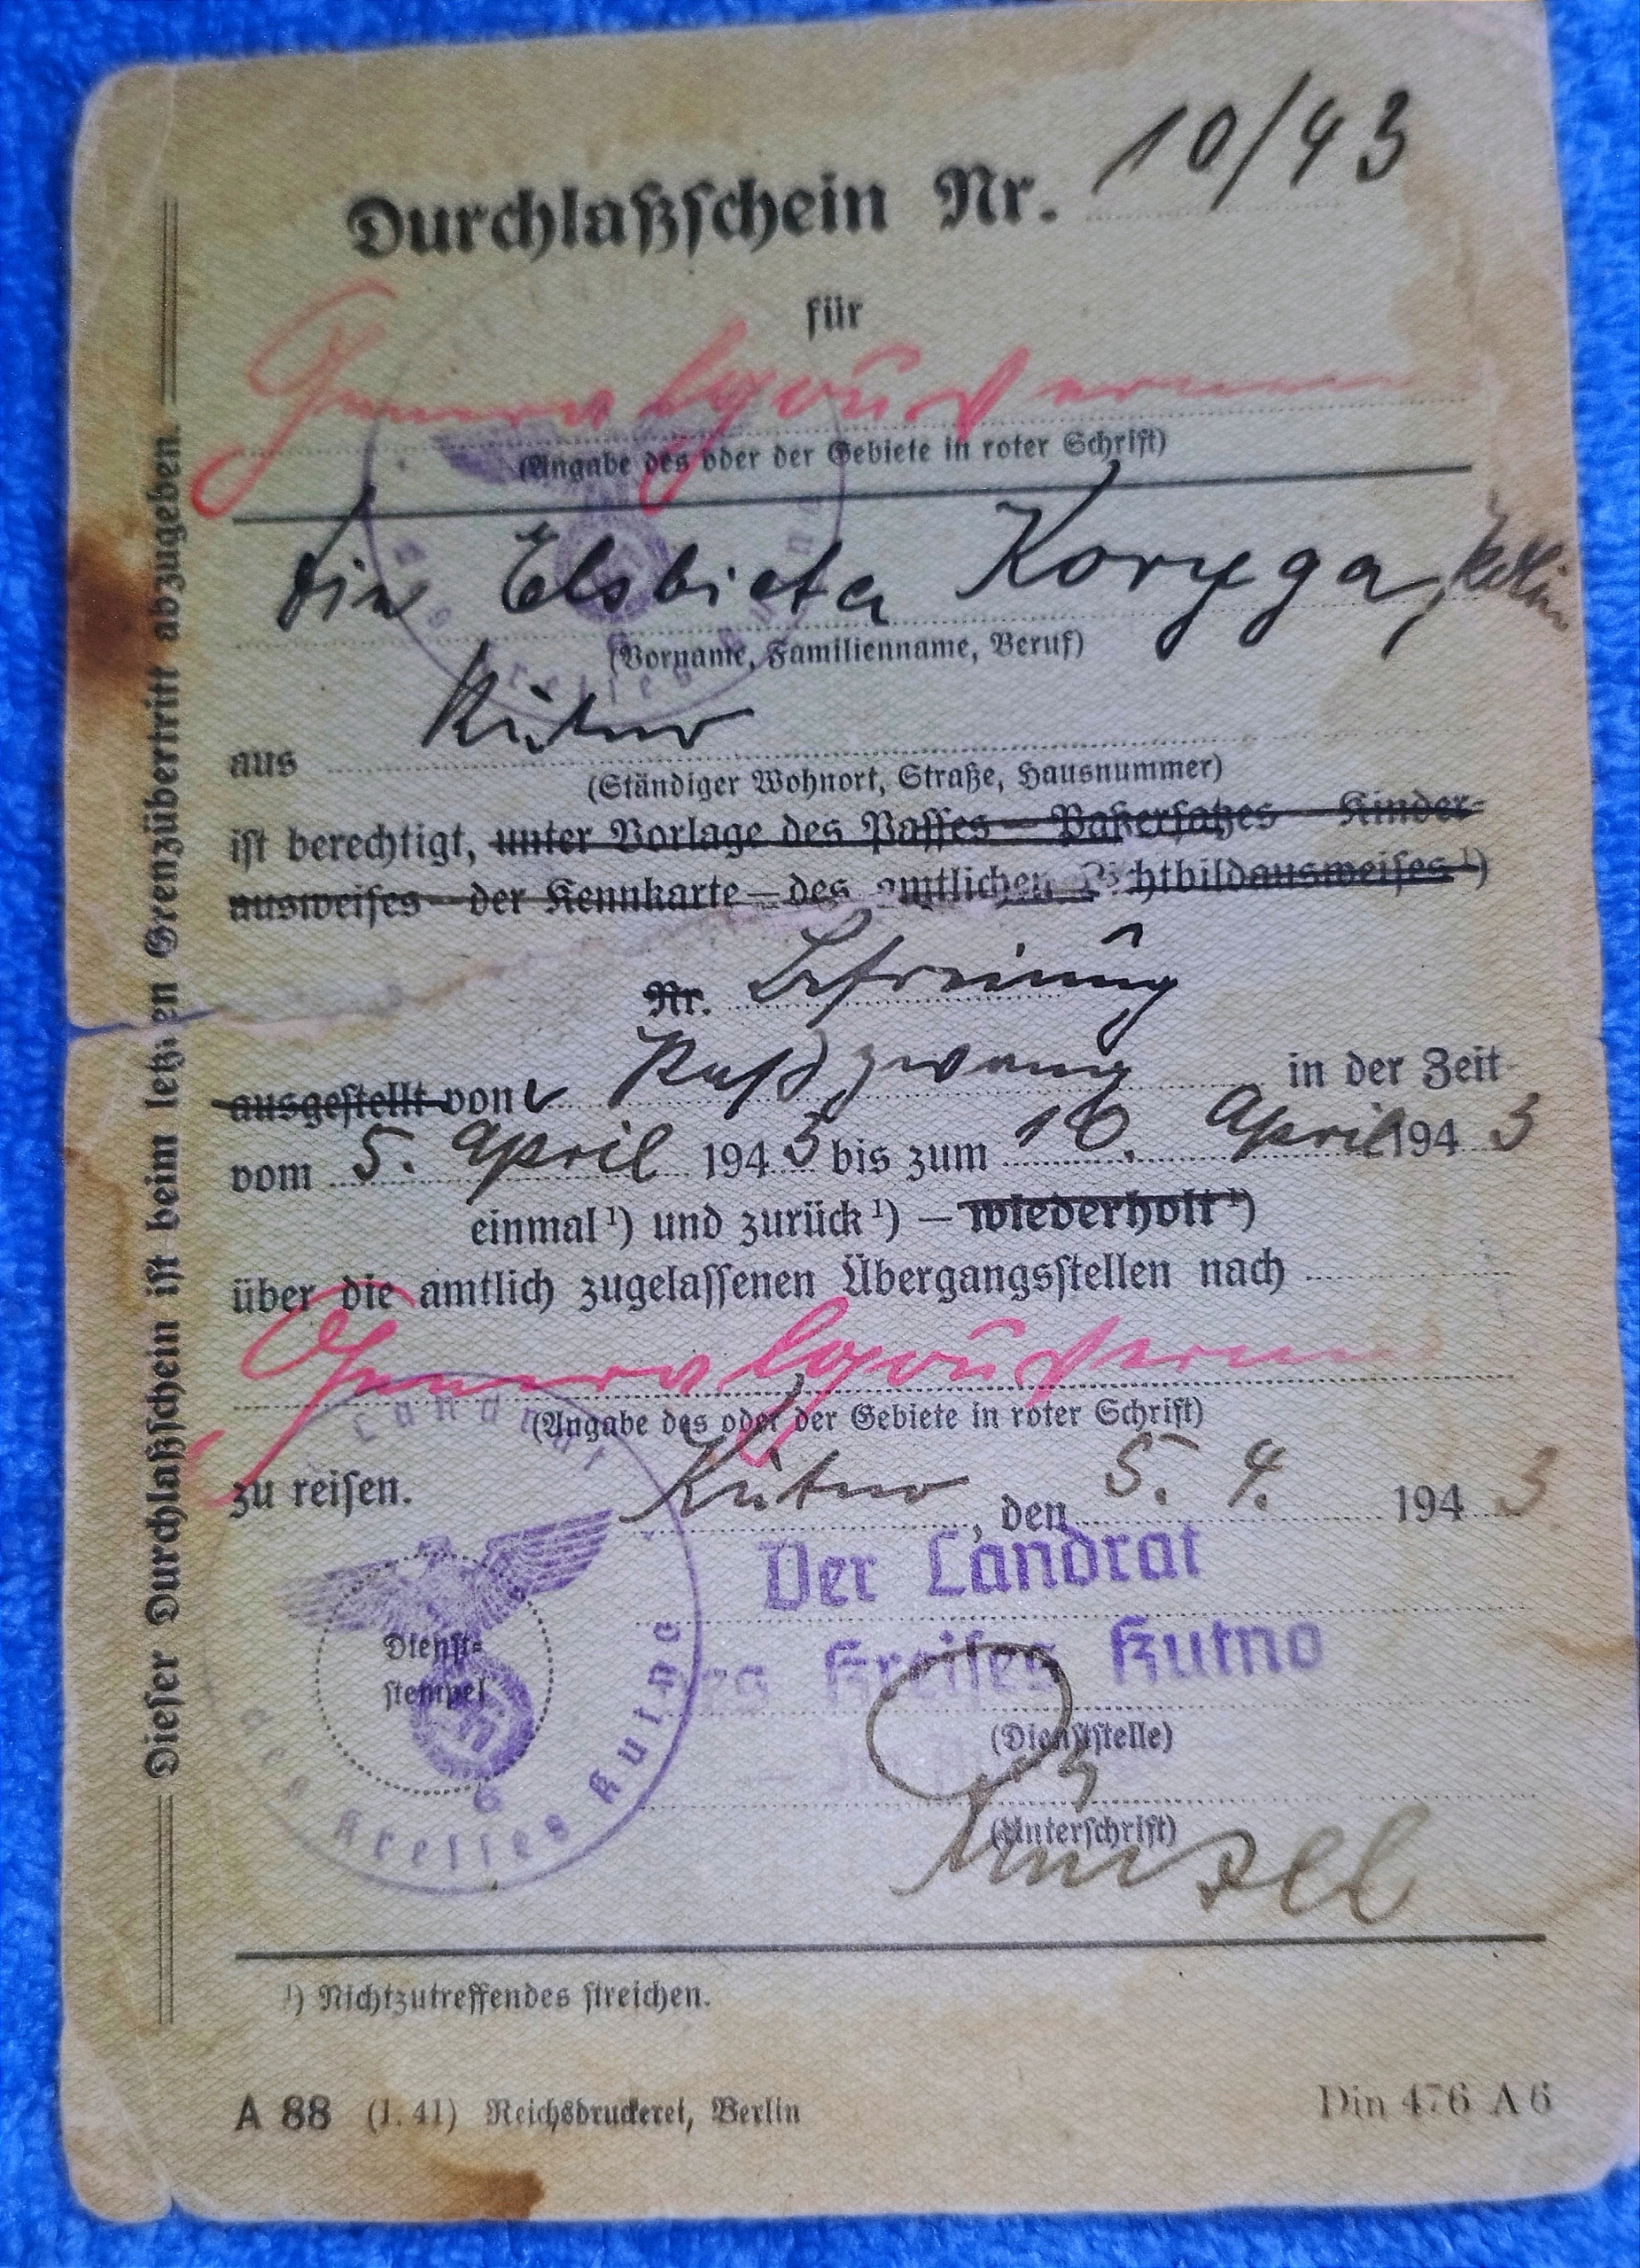 Durchlaßschein Nr. 10/43
für
Generalgouvernement
(Angabe des oder der Gebiete in roter Schrift)
die Elsbieta Koryga,
(Vorname, Familienname, Beruf)
aus Kutno
(Ständiger Wohnort, Straße, Hausnummer)
ist berechtigt, unter Vorlage des Passes — Paßersatzes — Kinder-
ausweises — der Kennkarte — des amtlichen Lichtbildausweises ¹)
Nr. Befreiung
ausgestellt von v Paßzwang in der Zeit
vom 5. April 1943 bis zum 16. April 1943
einmal ¹) und zurück ¹) — wiederholt ¹)
über die amtlich zugelassenen Übergangsstellen nach
Generalgouvernement
(Angabe des oder der Gebiete in roter Schrift)
zu reisen.
Kutno, den 5. 4. 1943
Der Landrat
des Kreises Kutno
Dienst-
stempel
Landrat
des Kreises Kutno
(Dienststelle)
(Unterschrift)
¹) Nichtzutreffendes streichen.
A 88 (1. 41) Reichsdruckerei, Berlin
Din 476 A 6
Dieser Durchlaßschein ist beim letzten Grenzübertritt abzugeben.